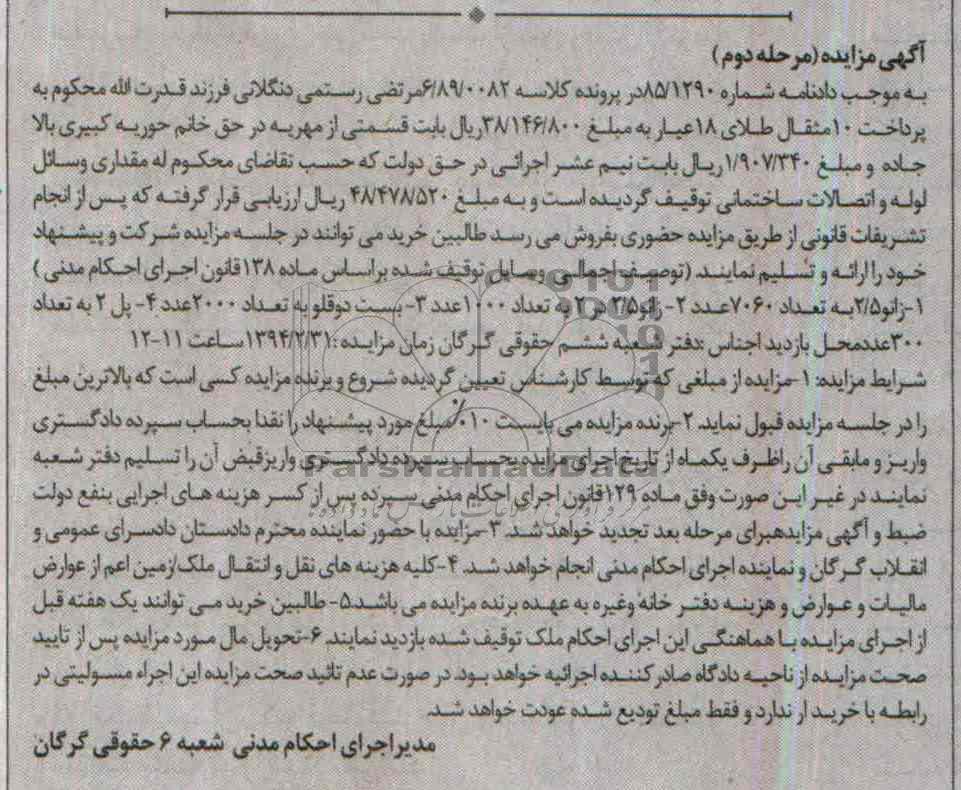 آگهی مزایده (مرحله دوم)
به موجب دادنامه شماره ۸۵/۱۲۹۰در پرونده کلاسه ۶/۸۹/۰۰۸۲مرتضی رستمی دنگلانی فرزند قدرت الله محکوم به
پرداخت ۱۰مثقال طلای ۱۸عیار به مبلغ ۳۸/۱۴۶/۸۰۰ریال بابت قسمتی از مهریه در حق خانم حوریه کبیری بالا
جاده و مبلغ ۱/۹۰۷/۳۴۰ریال بابت نیم عشر اجرائی در حق دولت که حسب تقاضای محکوم له مقداری وسائل
لوله و اتصالات ساختمانی توقیف گردیده است و به مبلغ ۴۸/۴۷۸/۵۲۰ ریال ارزیابی قرار گرفته که پس از انجام
تشریفات قانونی از طریق مزایده حضوری بفروش می رسد طالبین خرید می توانند در جلسه مزایده شرکت و پیشنهاد
خود را ارائه و تسلیم نمایند. (توصیف اجمالی وسایل توقیف شده براساس ماده ۱۳۸قانون اجرای احکام مدنی)
۱-زانو۲/۵به تعداد ۷۰۶۰عدد ۲- زانو۲/۵در۲ به تعداد ۱۰۰۰عدد ۳- بست دوقلو به تعداد ۲۰۰۰عدد ۴- پل ۲ به تعداد
۳۰۰عددمحل بازدید اجناس :دفتر شعبه ششم حقوقی گرگان زمان مزایده :۱۳۹۴/۲/۳۱ساعت ۱۱-۱۲
شرایط مزایده: ۱-مزایده از مبلغی که توسط کارشناس تعیین گردیده شروع و برنده مزایده کسی است که بالاترین مبلغ
را در جلسه مزایده قبول نماید. ۲-برنده مزایده می بایست ۱۰٪مبلغ مورد پیشنهاد را نقدا بحساب سپرده دادگستری
واریز و مابقی آن راظرف یکماه از تاریخ اجرای مزایده بحساب سپرده دادگستری واریزقبض آن را تسلیم دفتر شعبه
نمایند در غیر این صورت وفق ماده ۱۲۹قانون اجرای احکام مدنی سپرده پس از کسر هزینه های اجرایی بنفع دولت
ضبط و آگهی مزایدهبرای مرحله بعد تجدید خواهد شد. ۳-مزایده با حضور نماینده محترم دادستان دادسرای عمومی و
انقلاب گرگان و نماینده اجرای احکام مدنی انجام خواهد شد. ۴-کلیه هزینه های نقل و انتقال ملک/زمین اعم از عوارض
مالیات و عوارض و هزینه دفتر خانه وغیره به عهده برنده مزایده می باشد.۵- طالبین خرید می توانند یک هفته قبل
از اجرای مزایده با هماهنگی این اجرای احکام ملک توقیف شده بازدید نمایند. ۶-تحویل مال مورد مزایده پس از تایید
صحت مزایده از ناحیه دادگاه صادر کننده اجرائیه خواهد بود. در صورت عدم تائید صحت مزایده این اجراء مسولیتی در
رابطه با خرید ار ندارد و فقط مبلغ تودیع شده عودت خواهد شد.
مدیر اجرای احکام مدنی شعبه ۶ حقوقی گرگان
ParsNamadData